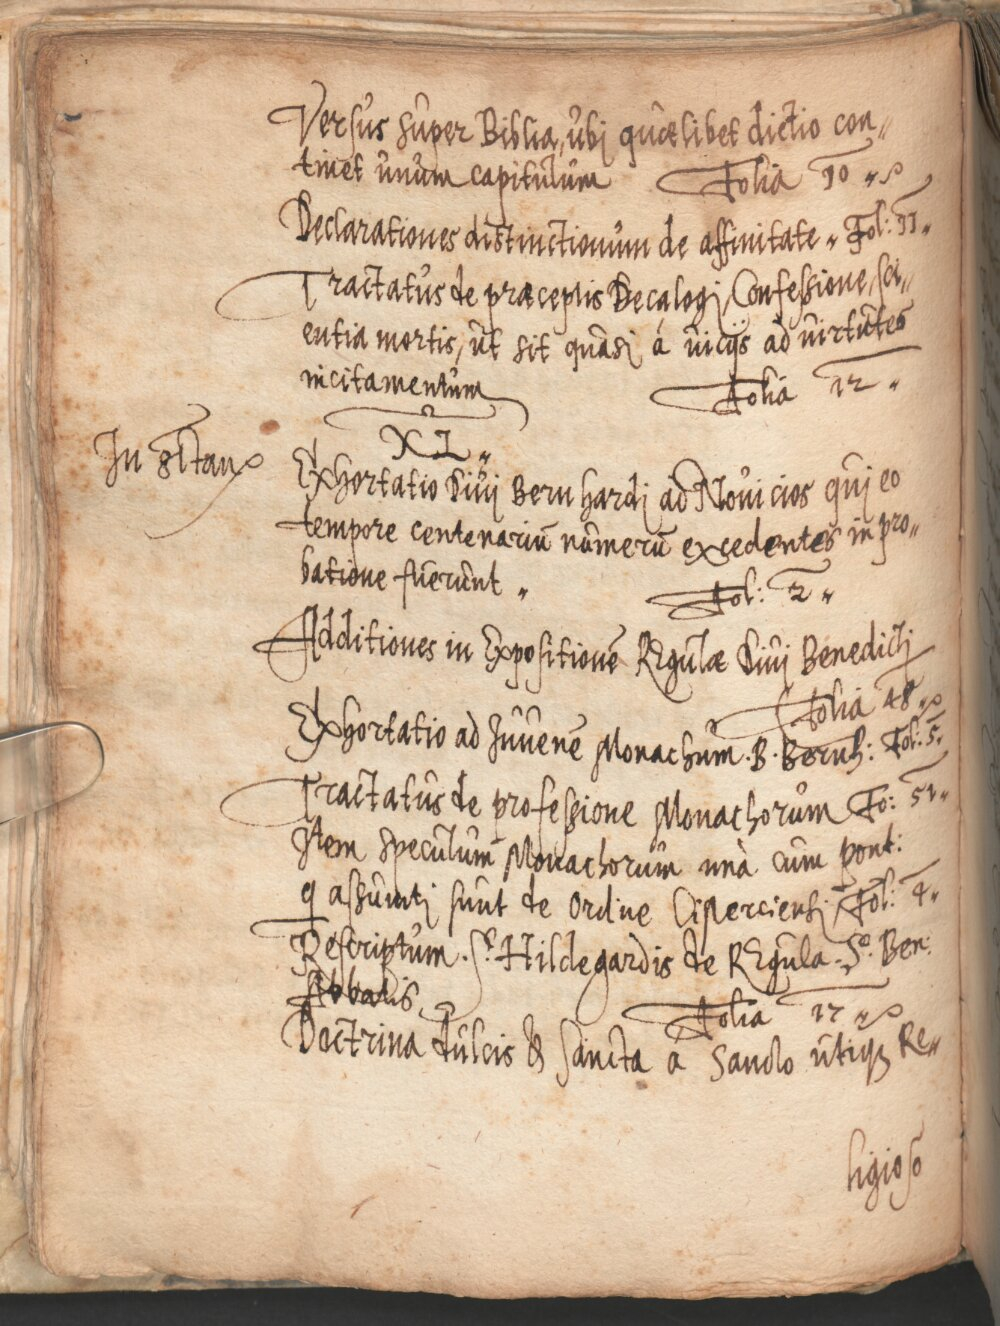 Versus super Biblia, ubj quælibet dictio con„
tinet unum capitulum Folia 10 „
Declarationes distinctionum de affinitate „ Fol: 11 „
Tractatus de præceptis Decalogj, Confessione, sci„
entia mortis, ut sit quasj á vicijs ad virtutes
incitamentum Folia 12 „
XI „
In 8
Exhortatio Divj Bernhardj ad Novicios quj eo
tempore centenariū numerū excedentes in pro„
batione fuerunt „ Fol: 2 „
Additiones in Expositionē Regulæ Divj Benedictj
Folia 48 „
Exhortatio ad Juvenē Monachum . B . Bernh: Fol: 5.
Tractatus de professione Monachorum Fo: 51 „
Item Speculum Monachorum unà cum pont:
q assumtj sunt de ordine Cisterciensj, Fol: 4 „
Rescriptum . S. Hildegardis de Regula . S. Ben:
Abbatis Folia 17 „
Doctrina dulcis & sancta a Sancto utiq3 Re„
ligioso